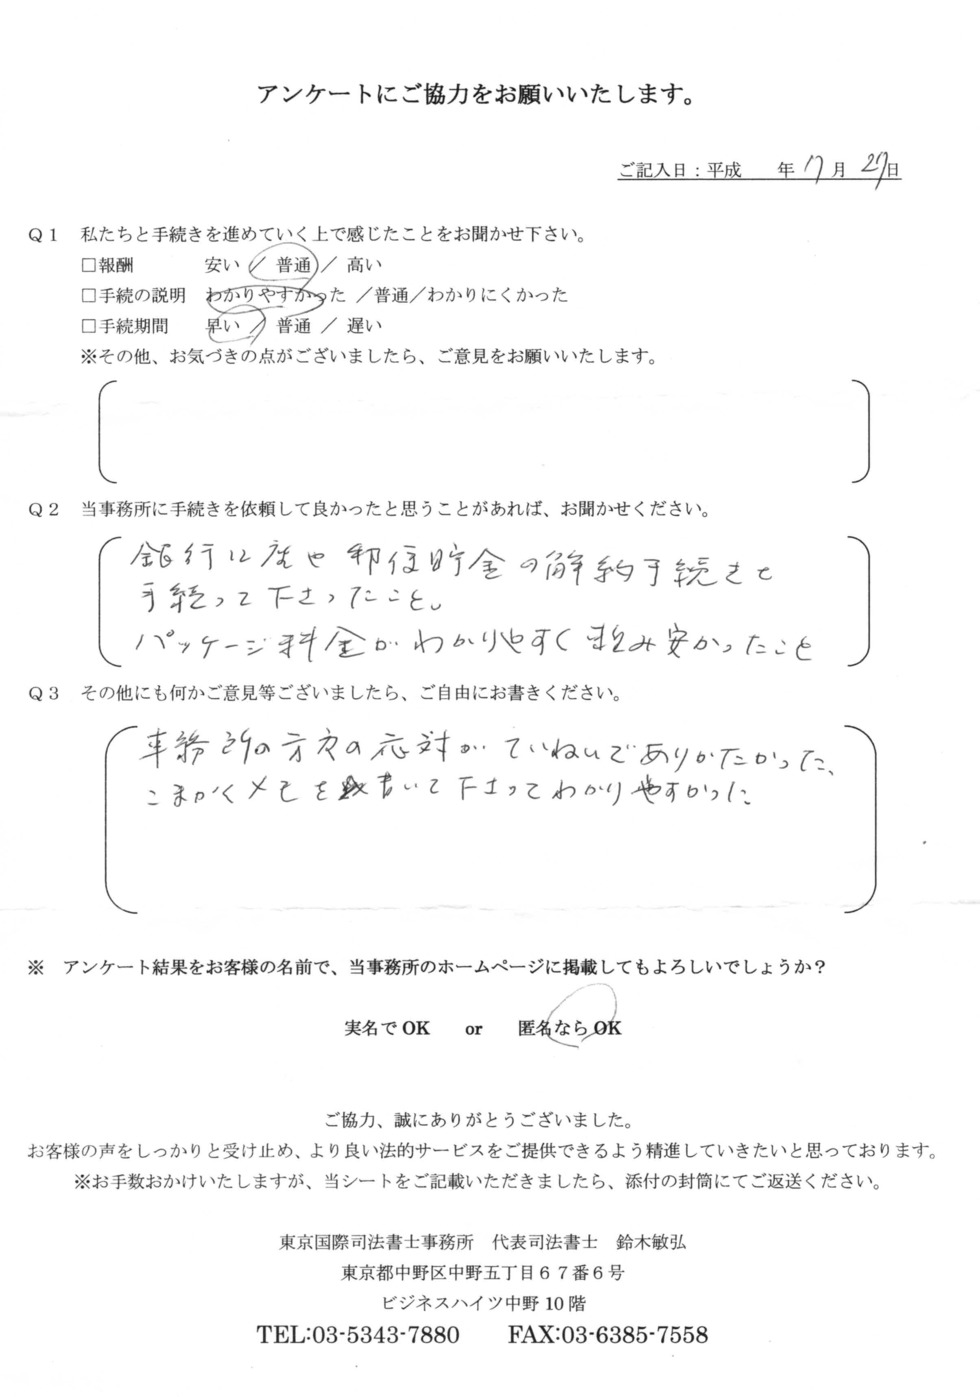 アンケートにご協力をお願いいたします。
ご記入日：平成　　年 17月 27日
Ｑ１　私たちと手続きを進めていく上で感じたことをお聞かせ下さい。
□報酬　　安い ／ 普通 ／ 高い
□手続の説明　わかりやすかった ／普通／わかりにくかった
□手続期間　早い ／ 普通 ／ 遅い
※その他、お気づきの点がございましたら、ご意見をお願いいたします。
Ｑ２　当事務所に手続きを依頼して良かったと思うことがあれば、お聞かせください。
銀行口座や 郵便貯金の解約手続きも
手続って下さったこと。
パッケージ料金がわかりやすく 頼み安かったこと
Ｑ３　その他にも何かご意見等ございましたら、ご自由にお書きください。
事務所の方々の応対が ていねいでありがたかった、
こまかくメモを書いて下さってわかりやすかった
※　アンケート結果をお客様の名前で、当事務所のホームページに掲載してもよろしいでしょうか？
実名でOK　or　匿名ならOK
ご協力、誠にありがとうございました。
お客様の声をしっかりと受け止め、より良い法的サービスをご提供できるよう精進していきたいと思っております。
※お手数おかけいたしますが、当シートをご記載いただきましたら、添付の封筒にてご返送ください。
東京国際司法書士事務所　代表司法書士　鈴木敏弘
東京都中野区中野五丁目６７番６号
ビジネスハイツ中野 10 階
TEL:03-5343-7880　FAX:03-6385-7558